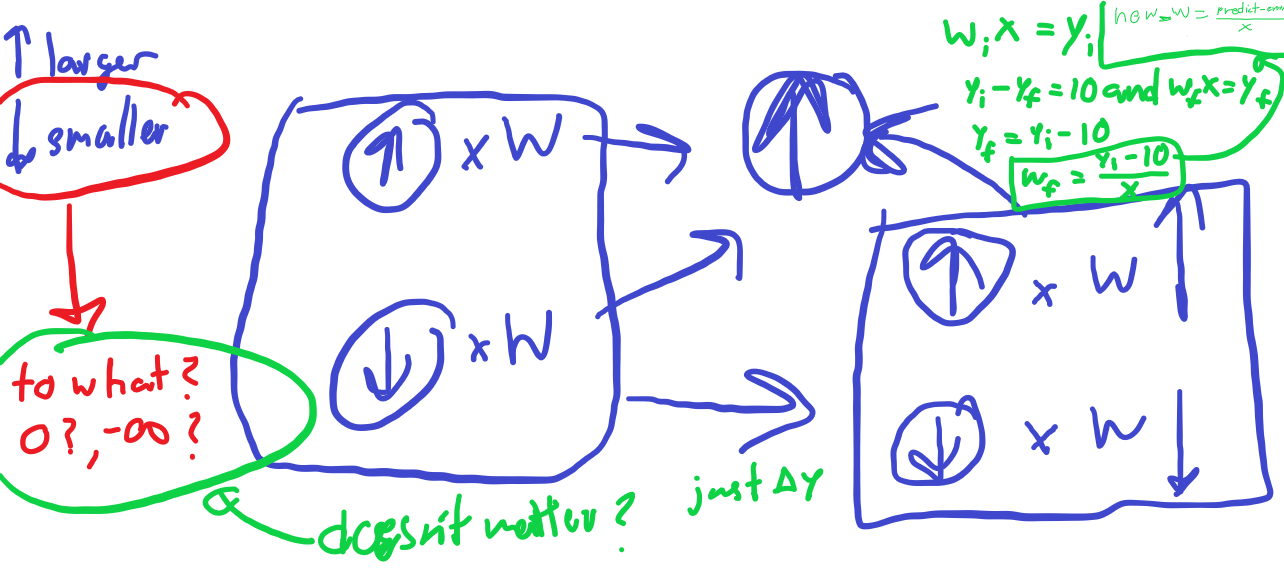 ↑ larger
↓ smaller
to what?
0?, -∞?
doesn't matter?
↑ x W
↓ x W
just ΔY
↑
wᵢx = yᵢ
new_w = predict-
x
yᵢ - y_f = 10 and w_f x = y_f
y_f = yᵢ - 10
w_f = yᵢ - 10
x
↑ x W ↑
↓ x W ↓